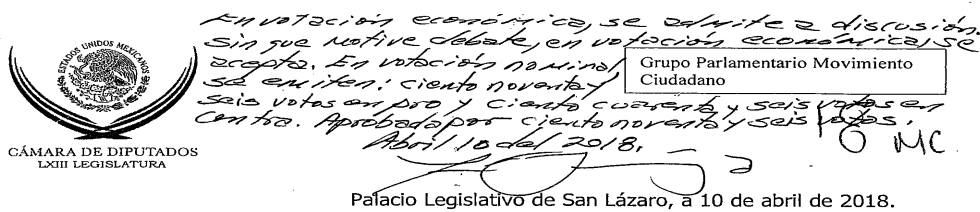 En votación económica, se admite a discusión.
Sin que motive debate, en votación económica, se
acepta. En votación nominal
se emiten: ciento noventa y
seis votos en pro y ciento cuarenta y seis votos en
contra. Aprobada por ciento noventa y seis votos.
Abril 10 del 2018.
Grupo Parlamentario Movimiento
Ciudadano
MC
ESTADOS UNIDOS MEXICANOS
CÁMARA DE DIPUTADOS
LXIII LEGISLATURA
Palacio Legislativo de San Lázaro, a 10 de abril de 2018.